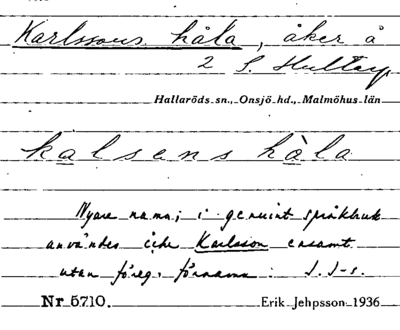 Karlssons håla, åker å
2 S. Hultarp
Hallaröds sn., Onsjö hd., Malmöhus län
kalsens håla
Nyare namn; i genuint språkbruk
användes icke Karlsson ensamt
utan föreg. förnamn. J. J-s.
Nr 5710. Erik Jehpsson 1936